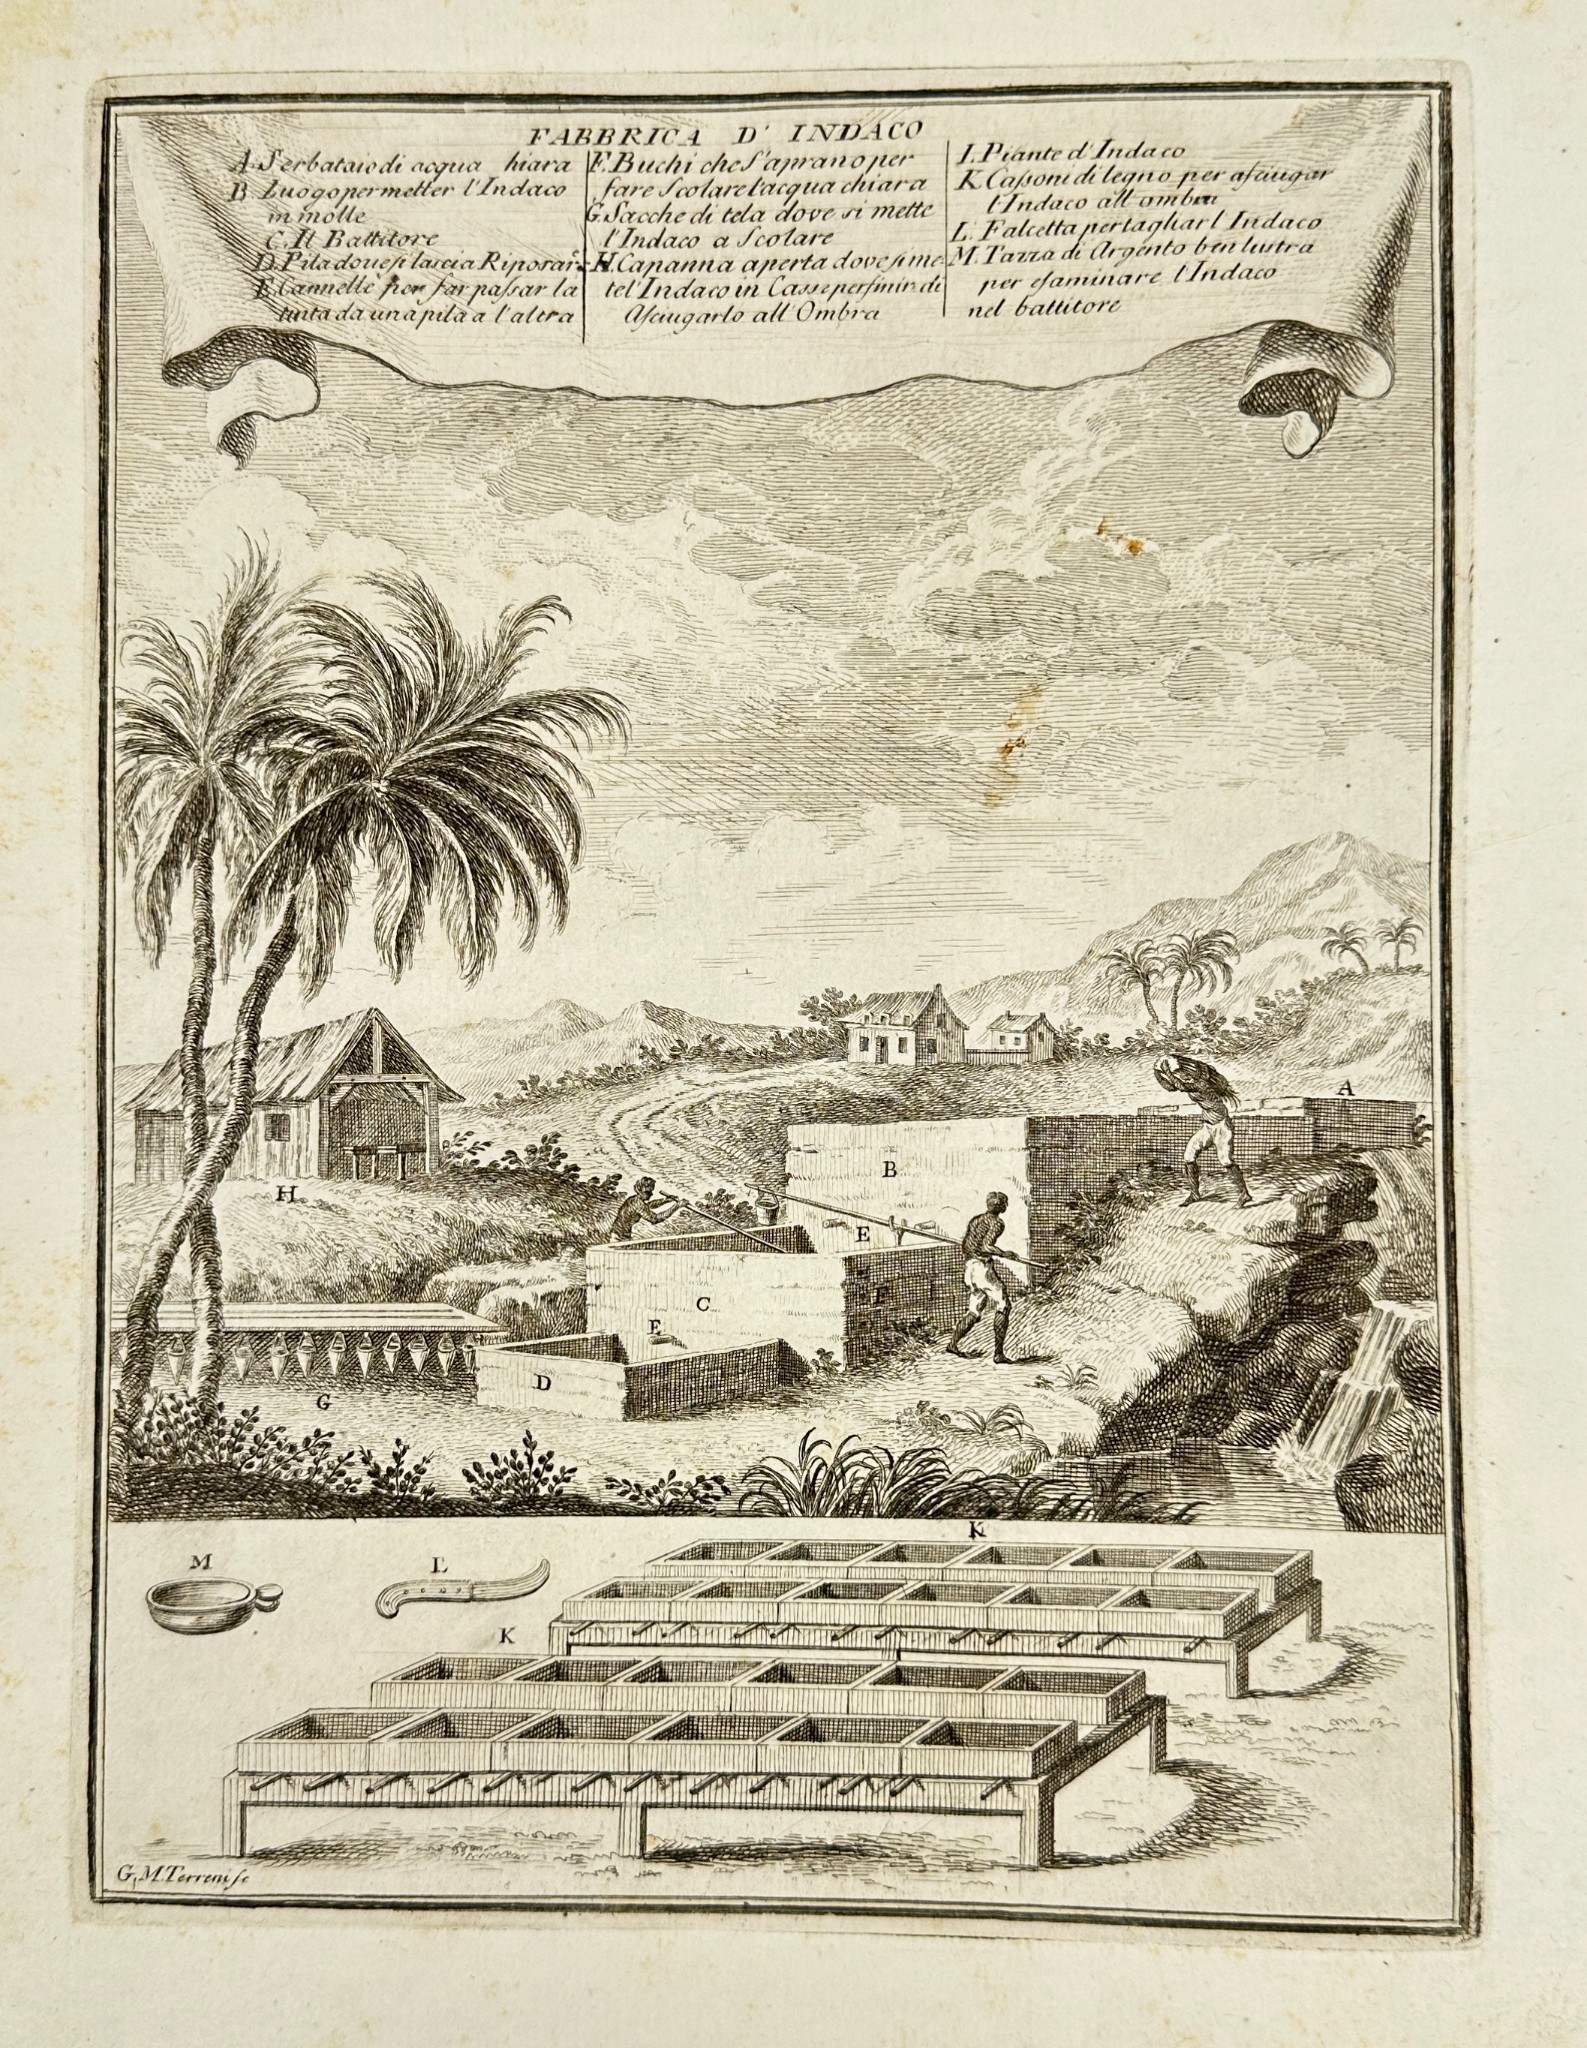 FABBRICA D' INDACO
A. Serbataio di acqua hiara
B Luogo per metter l'Indaco
in molle
C. Il Battitore
D. Pila doue si lascia Riposare
E. Cannelle per far passar la
tinta da una pila a l'altra
F. Buchi che S'aprano per
fare Scolare l'acqua chiara
G. Sacche di tela dove si mette
l'Indaco a Scolare
H. Capanna aperta dove si me-
te l'Indaco in Casse per finir di
Asciugarlo all'Ombra
I. Piante d'Indaco
K. Cassoni di legno per asciugar
l'Indaco all'ombra
L. Falcetta per tagliar l'Indaco
M. Tazza di Argento ben lustra
per esaminare l'Indaco
nel battitore
A
B
H
E
C
F
E
D
G
K
M
L
K
G. M. Terreni sc